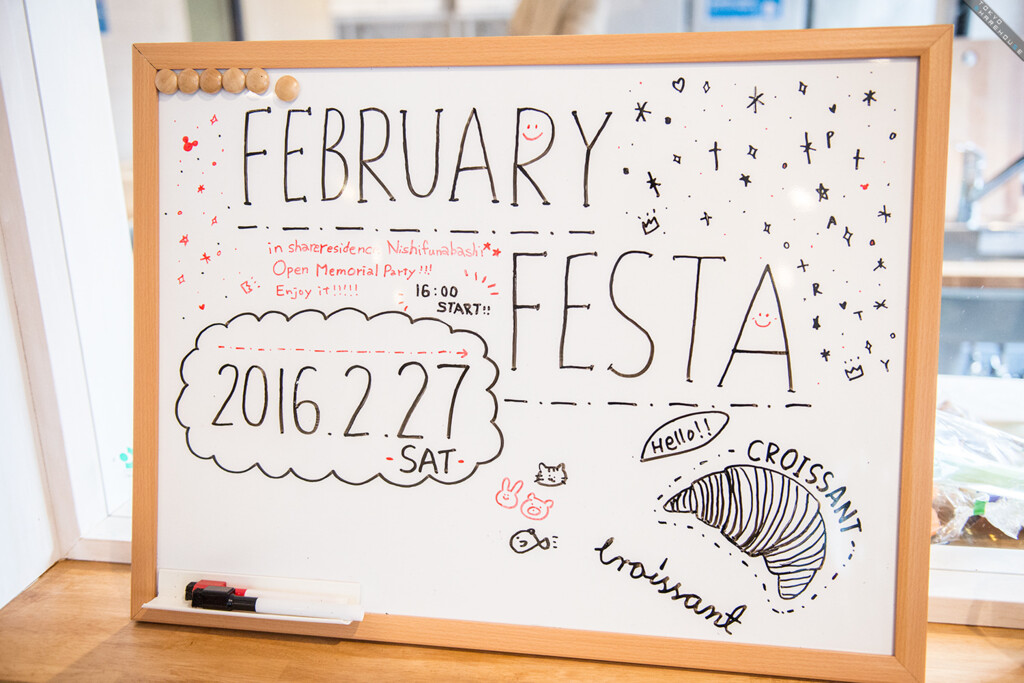 FEBRUARY
FESTA
in shareresidenc Nishifunabashi
Open Memorial Party!!!
Enjoy it!!!!!
16:00
START!!
2016.2.27
-SAT-
PARTY
Hello!!
CROISSANT
Croissant
TOKYO